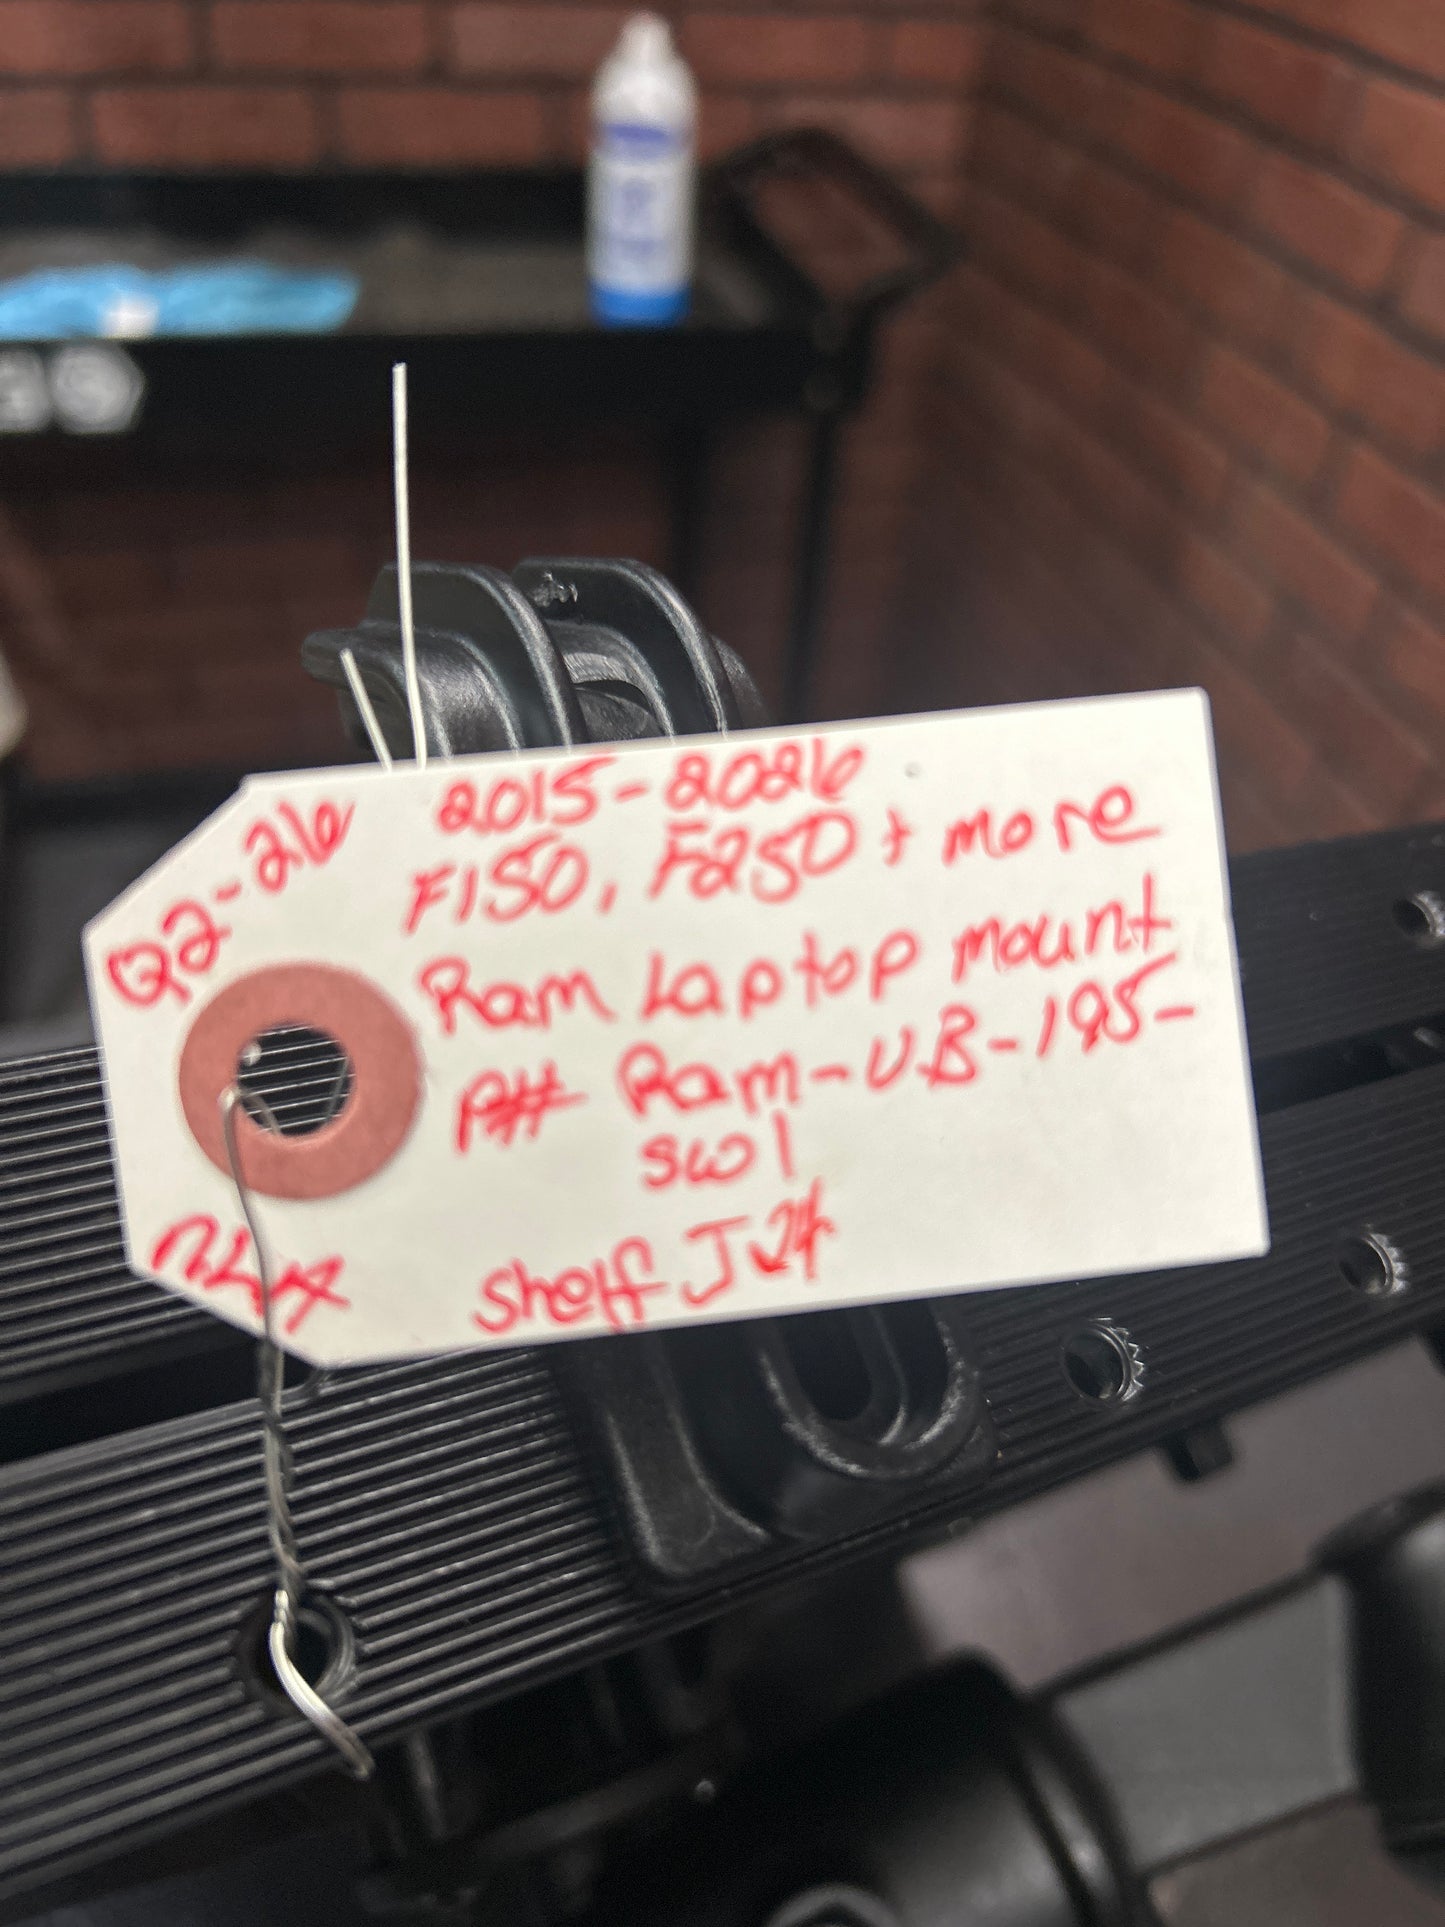 Q2-26
2015-2026
F150, F250 + more
Ram Laptop mount
P# Ram-VB-195-
SW1
Shelf J24